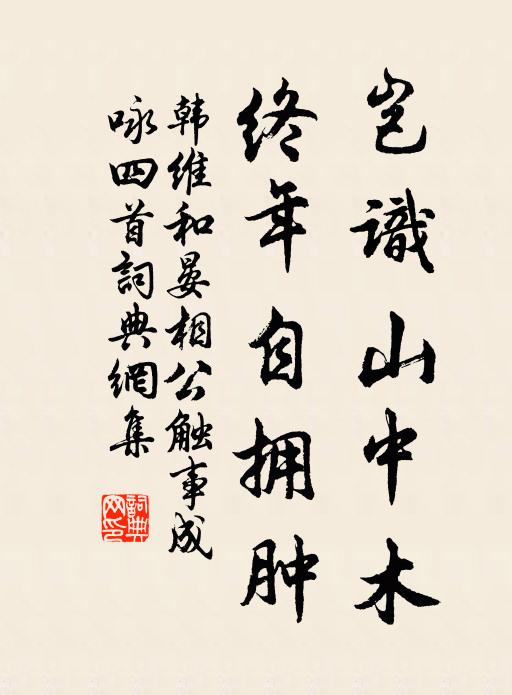 岂識山中木
终年自拥肿
韩维和晏相公触事成
咏四首詞典網集
詞典網印